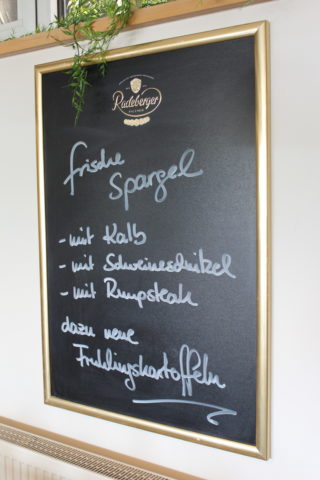 Radeberger
PILSNER
frische
Spargel
- mit Kalb
- mit Schweineschnitzel
- mit Rumpsteak
dazu neue
Frühlingskartoffeln